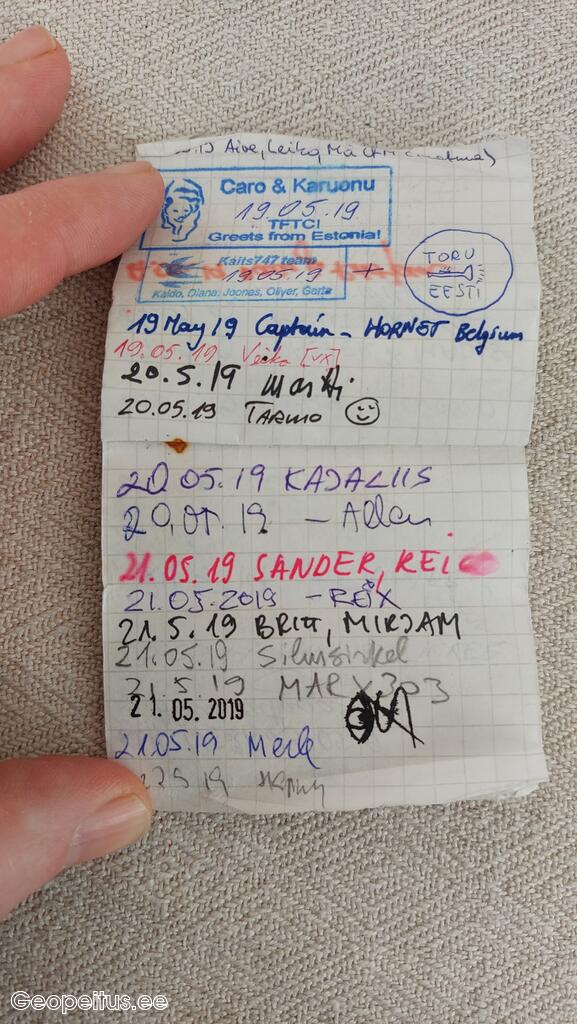 Aive, Leiko,
Caro & Karuonu
19.05.19
TFTC!
Greets from Estonia!
Kaits747 team
19.05.19 +
Kaido, Diana, Joonas, Oliver, Gerta
TORU
EESTI
19 May 19 Captain - HORNET Belgium
19.05.19 Veiko [VX]
20.5.19 Martti
20.05.19 TARMO
20.05.19 KADALIIS
20.05.19 - Allan
21.05.19 SANDER, REI
21.05.2019 - REiX
21.5.19 BRITT, MIRJAM
21.05.19 Silmsirkel
21.5.19 MARX303
21.05.2019
21.05.19 Merle
22.5.19
Geopeitus.ee